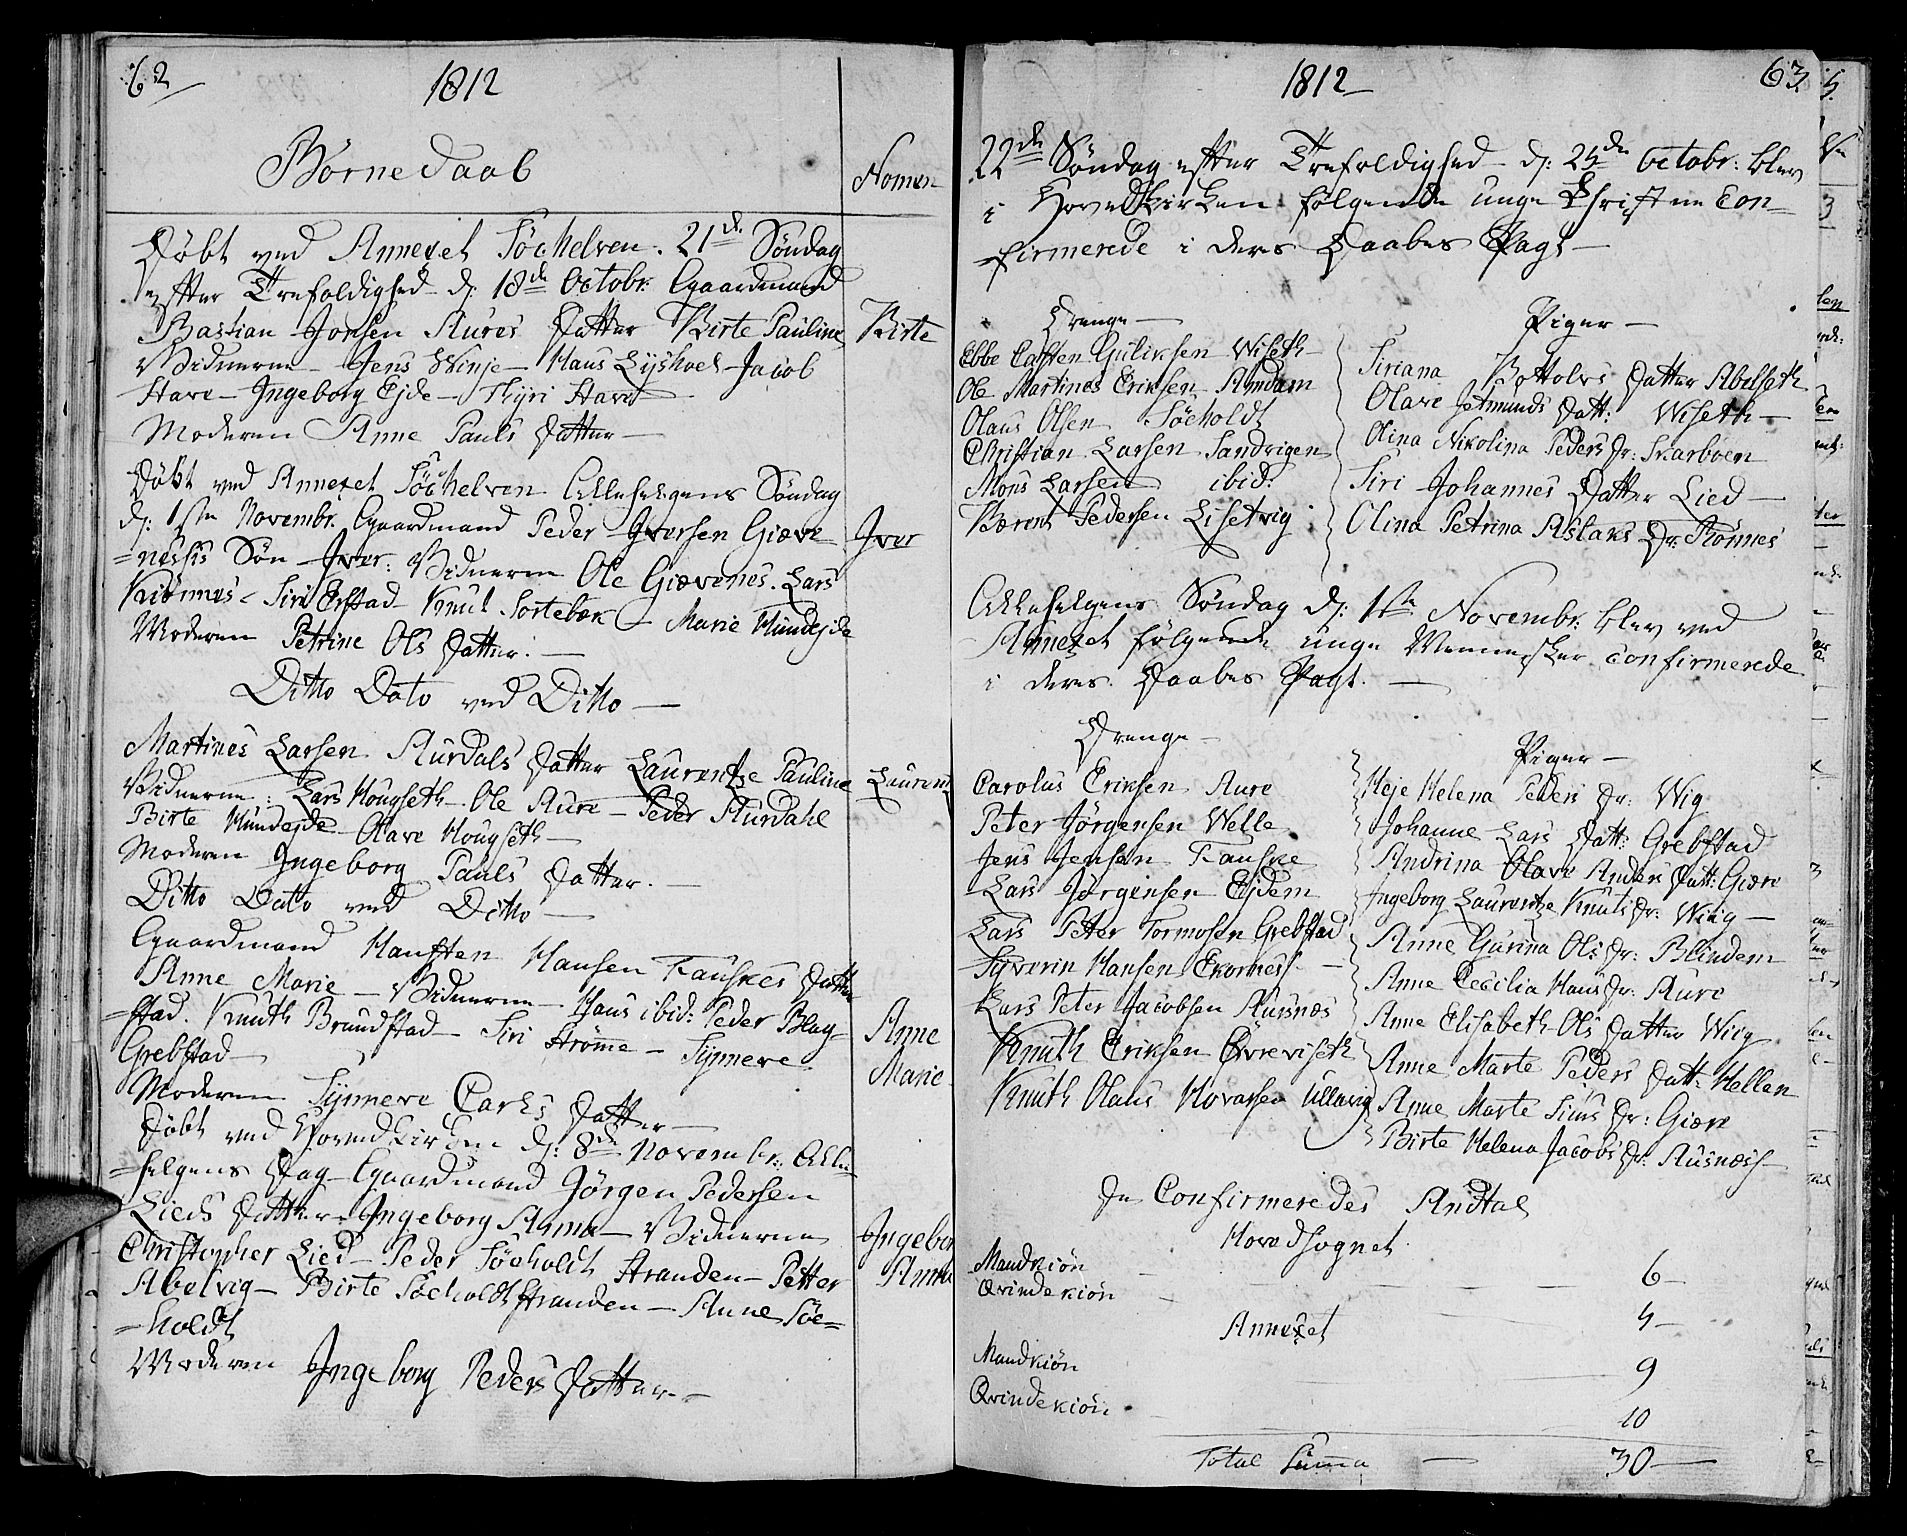 62
1812
Börne Daab
Nomen
Döbt ved Annexet Söckelven. 21de Söndag
efter Trefoldighed d: 18de Octobr. Gaardmand
Bastian Jonsen Aures Datter Birte Pauline
Birte
Vidnerne – Jens Winje – Hans Lyshoel – Jacob
Hare – Ingeborg Ejde – Thyri Hare
Moderen Anne Pauls Datter –
Döbt ved Annexet Söckelven Allehelgens Söndag
d: 1ste Novembr. Gaardmand Peder Iversen Giæve
Iver
=neses Sön Iver: Vidnerne Ole Giævenes. Lars
Kiönnes – Siri Erstad – Knut Sortebæk – Marie Hundejde
Moderen Petrine Ols Datter. –
Ditto Dato ved Ditto –
Martines Larsen Aurdals Datter Laurentze Pauline
Laurentz
Vidnerne: Lars Hougseth – Ole Aure – Peder Aurdahl
Birte Hundejde – Olave Hougseth –
Moderen Ingeborg Pauls Datter. –
Ditto Dato ved Ditto –
Gaardmand Hansten Hansen Fauskes Datter
Anne Marie – Vidnerne – Hans ibid: Peder Blag=
=stad. Knuth Brundstad – Siri Strömme – Synneve
Anne
Marie
Grebstad –
Moderen Synneve Carls Datter –
Döbt ved Hovedkirken d: 8de Novembr: Alle=
=helgens Dag – Gaardmand Jörgen Pedersen
Lieds Datter – Ingeborg Anna – Vidnerne
Ingebor
Anna
Christopher Lied – Peder Söeholdt Stranden – Petter
Abelvig – Birte Söeholdt Stranden – Anne Söe=
=holdt
Moderen Ingeborg Peders Datter. –
1812
63
22de Söndag efter Trefoldighed d: 25de Octobr: blev
i Hovedkirken følgende unge Christne Con=
firmerede i deres Daabes Pagt –
Drenge –
Piger –
Ebbe Carsten Guliksen Wiseth
Ole Martines Eriksen Amdam
Olaus Olsen Söeholdt
Christian Larsen Sandvigen
Mons Larsen ibid:
Bærent Pedersen Lisetvig
Siriana Bottolvs Datter Abelseth
Olave Jetmunds Datt: Wiseth –
Olina Nikolina Peders Dr: Skarboen
Siri Johannes Datter Lied –
Olina Petrina Aslaks Dr: Rönnes
Allehelgens Söndag d: 1ste Novembr: blev ved
Annexet følgende unge Mennesker confirmerede
i deres Daabes Pagt. –
Drenge –
Piger –
Carolus Eriksen Aure
Peter Jörgensen Welle
Jens Jensen Fauske
Lars Jörgensen Ejdem
Lars Peter Tormosen Grebstad
Syverin Hansen Ekorness –
Lars Peter Jacobsen Ausnæs
Knuth Eriksen Övreviseth
Knuth Olaus Hovarsen Ullavig
Heje Helena Peders Dr: Wig
Johanne Lars Datt: Grebstad
Andrina Olave Anders Datt: Giære
Ingeborg Laurentze Knuts Dr: Wiig –
Anne Gurina Ols Dr: Blindem
Anne Cecilia Hans Dr: Aure
Anne Elisabeth Ols Datter Wiig
Anne Marte Peders Datt: Hellen
Anne Marte Siurs Dr: Giære
Birte Helena Jacobs Dr: Ausnæss –
De Confirmeredes Andtal
Hovedsognet
Mandkiön – 6 –
Qvindekiön – 5 –
Annexet
Mandkiön 9
Qvindekiön 10
Total Summa – 30 –